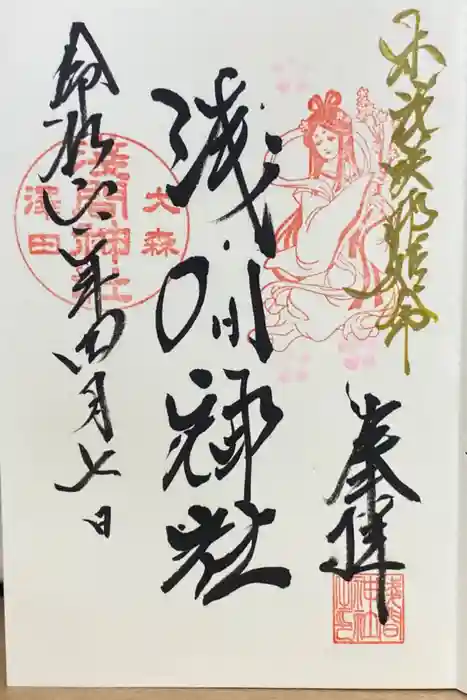 木花咲耶姫命
奉拝
浅間神社
大森
浅間神社
深田
令和六年四月七日
浅間神社之印